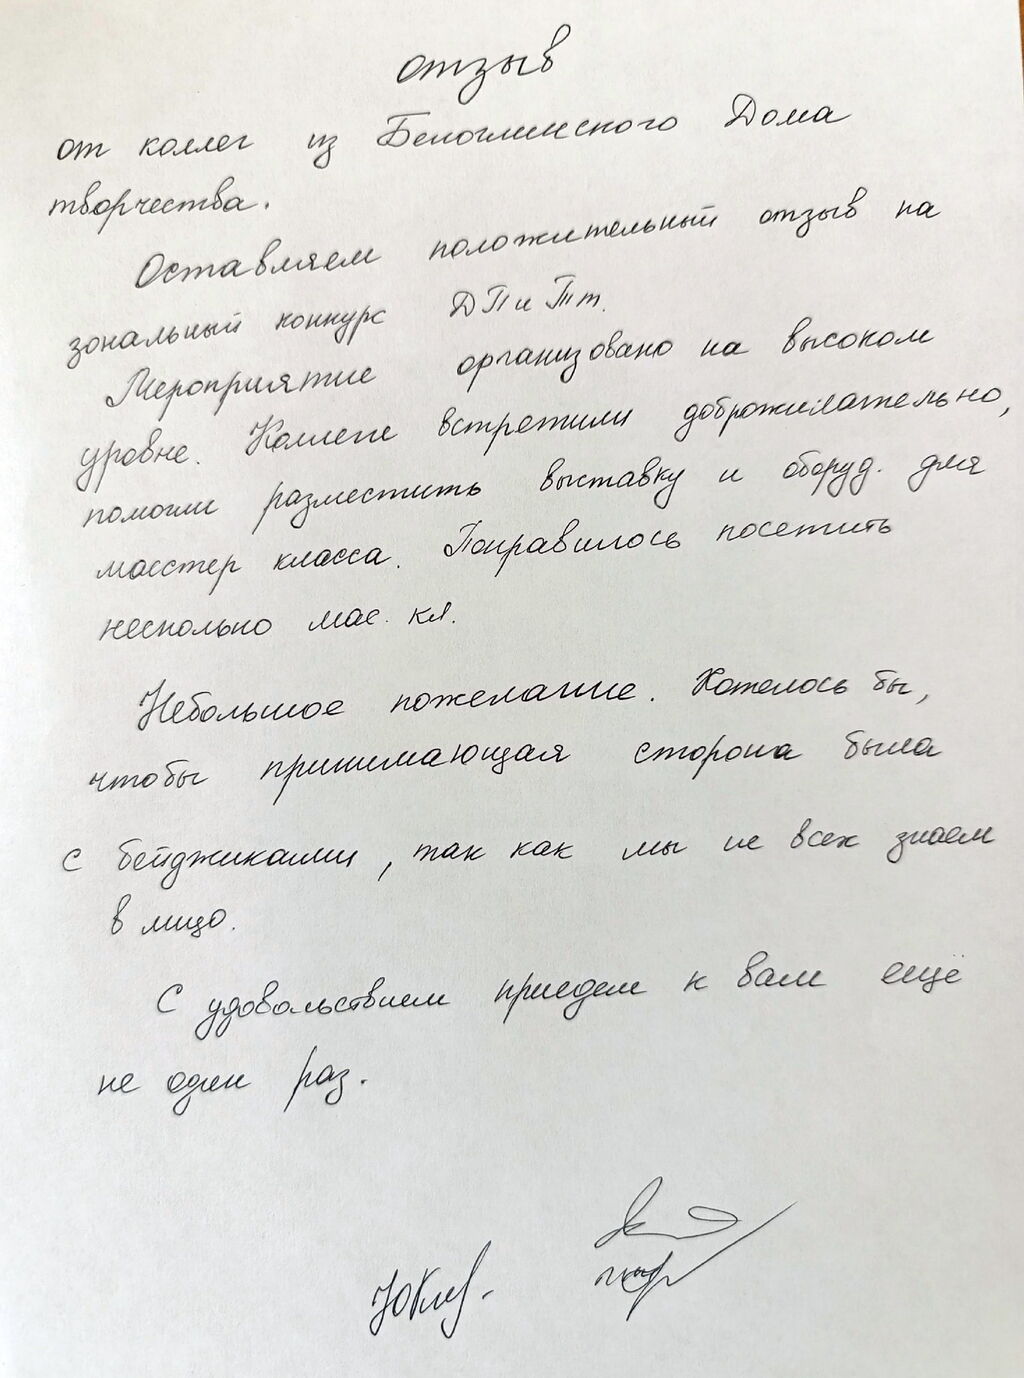 отзыв
от коллег из Белоглинского Дома
творчества.
Оставляем положительный отзыв на
зональный конкурс ДПиТт.
Мероприятие организовано на высоком
уровне. Коллеги встретили доброжелательно,
помогли разместить выставку и оборуд. для
масстер класса. Понравилось посетить
несколько мас. кл.
Небольшое пожелание. Хотелось бы,
чтобы принимающая сторона была
с бейджиками, так как мы не всех знаем
в лицо.
С удовольствием приедем к вам ещё
не один раз.